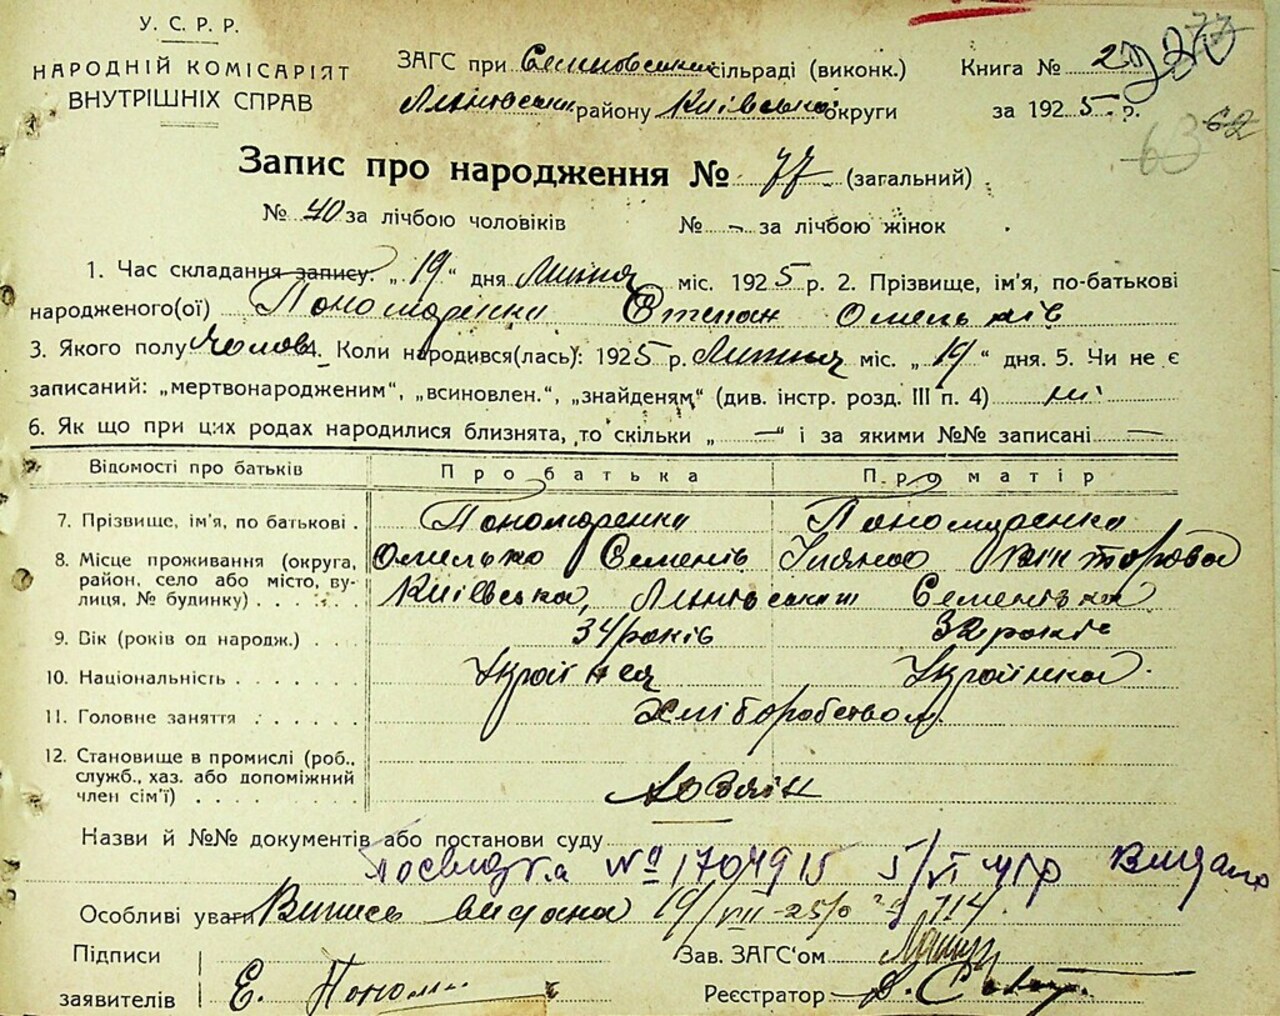 У. С. Р. Р.
НАРОДНІЙ КОМІСАРІЯТ
ВНУТРІШНІХ СПРАВ
ЗАГС при сільраді (виконк.)
району Київської округи
Книга №
за 1925 р.
62
63
Запис про народження № 77 (загальний)
№ 40 за лічбою чоловіків № - за лічбою жінок
1. Час складання запису: „19“ дня Липня міс. 1925 р. 2. Прізвище, ім'я, по-батькові
народженого(ої) Пономаренко Степан Омельків
3. Якого полу Чолов 4. Коли народився(лась): 1925 р. Липня міс. „19“ дня. 5. Чи не є
записаний: „мертвонародженим“, „всиновлен.“, „знайденям“ (див. інстр. розд. III п. 4) ні
6. Як що при цих родах народилися близнята, то скільки „—“ і за якими №№ записані —
Відомості про батьків Про батька Про матір
7. Прізвище, ім'я, по батькові . Пономаренко Пономаренко
Омелько Семенів Уляна Вікторова
8. Місце проживання (округа, район, село або місто, вулиця, № будинку) . . . . Київська, Семенівка
9. Вік (років од народж.) . . . 34 років 32 років
10. Національність . . . . . . . Українец Українка
11. Головне заняття . . . . . . Хліборобством
12. Становище в промислі (роб., служб., хаз. або допоміжний член сім'ї) . . . . Хозяїн
Назви й №№ документів або постанови суду
посвідка № 1704915 5/VI Видано
Особливі уваги Випись видана 19/VIII-25 р № 714
Підписи
заявителів Е. Поном
Зав. ЗАГС‘ом
Реєстратор